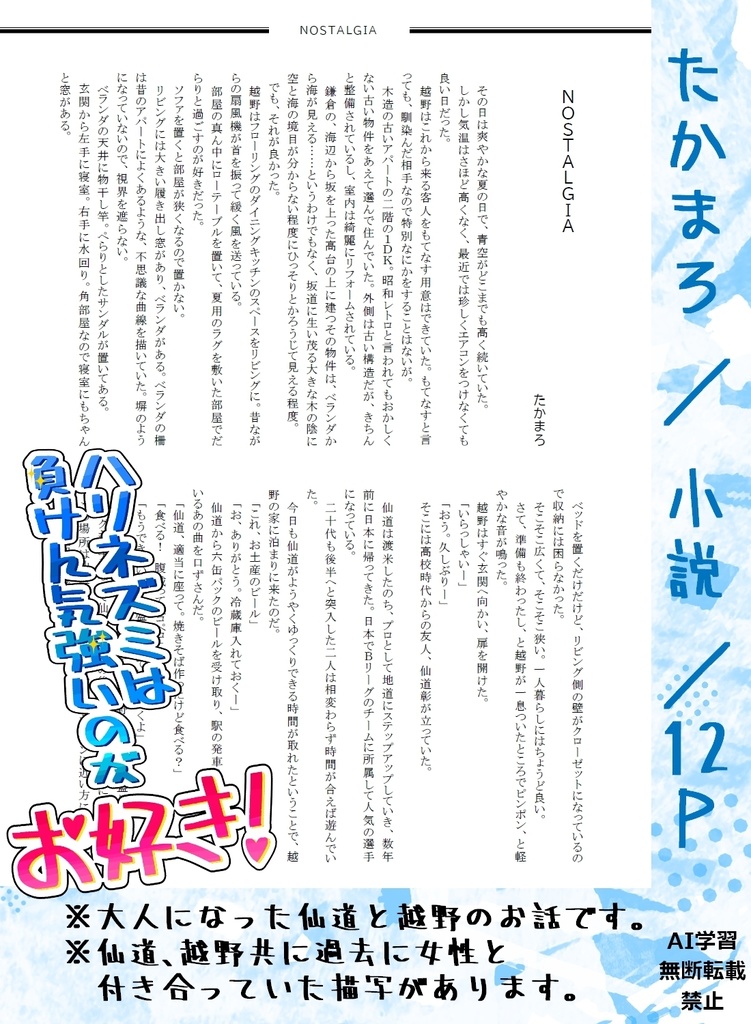 NOSTALGIA
NOSTALGIA
たかまろ
その日は爽やかな夏の日で、青空がどこまでも高く続いていた。
しかし気温はさほど高くなく、最近では珍しくエアコンをつけなくても
良い日だった。
越野はこれから来る客人をもてなす用意はできていた。もてなすと言
っても、馴染んだ相手なので特別なにかをすることはないが。
木造の古いアパートの二階の1DK。昭和レトロと言われてもおかしく
ない古い物件をあえて選んで住んでいた。外側は古い構造だが、きちん
と整備されているし、室内は綺麗にリフォームされている。
鎌倉の、海辺から坂を上った高台の上に建つその物件は、ベランダか
ら海が見える……というわけでもなく、坂道に生い茂る大きな木の陰に
空と海の境目が分からない程度にひっそりとかろうじて見える程度。
でも、それが良かった。
越野はフローリングのダイニングキッチンのスペースをリビングに。昔なが
らの扇風機が首を振って緩く風を送っている。
部屋の真ん中にローテーブルを置いて、夏用のラグを敷いた部屋でだ
らりと過ごすのが好きだった。
ソファを置くと部屋が狭くなるので置かない。
リビングには大きい履き出し窓があり、ベランダがある。ベランダの柵
は昔のアパートによくあるような、不思議な曲線を描いていた。塀のよう
になっていないので、視界を遮らない。
ベランダの天井に物干し竿。ぺらりとしたサンダルが置いてある。
玄関から左手に寝室。右手に水回り。角部屋なので寝室にもちゃん
と窓がある。
ベッドを置くだけだけど、リビング側の壁がクローゼットになっているの
で収納には困らなかった。
そこそこ広くて、そこそこ狭い。一人暮らしにはちょうど良い。
さて、準備も終わったし、と越野が一息ついたところでピンポン、と軽
やかな音が鳴った。
越野はすぐ玄関へ向かい、扉を開けた。
「いらっしゃいー」
「おう。久しぶりー」
そこには高校時代からの友人、仙道彰が立っていた。
仙道は渡米したのち、プロとして地道にステップアップしていき、数年
前に日本に帰ってきた。日本でBリーグのチームに所属して人気の選手
になっている。
二十代も後半へと突入した二人は相変わらず時間が合えば遊んでい
た。
今日も仙道がようやくゆっくりできる時間が取れたということで、越
野の家に泊まりに来たのだ。
「これ、お土産のビール」
「お、ありがとう。冷蔵庫入れておくー」
仙道から六缶パックのビールを受け取り、駅の発車
いるあの曲を口ずさんだ。
「仙道、適当に座って。焼きそば作
けど食べる？」
「食べる！
「もうでき
ハリネズミは
負けん気強いのが
お好き！
たかまろ／小説／12P
※大人になった仙道と越野のお話です。
※仙道、越野共に過去に女性と
付き合っていた描写があります。
AI学習
無断転載
禁止